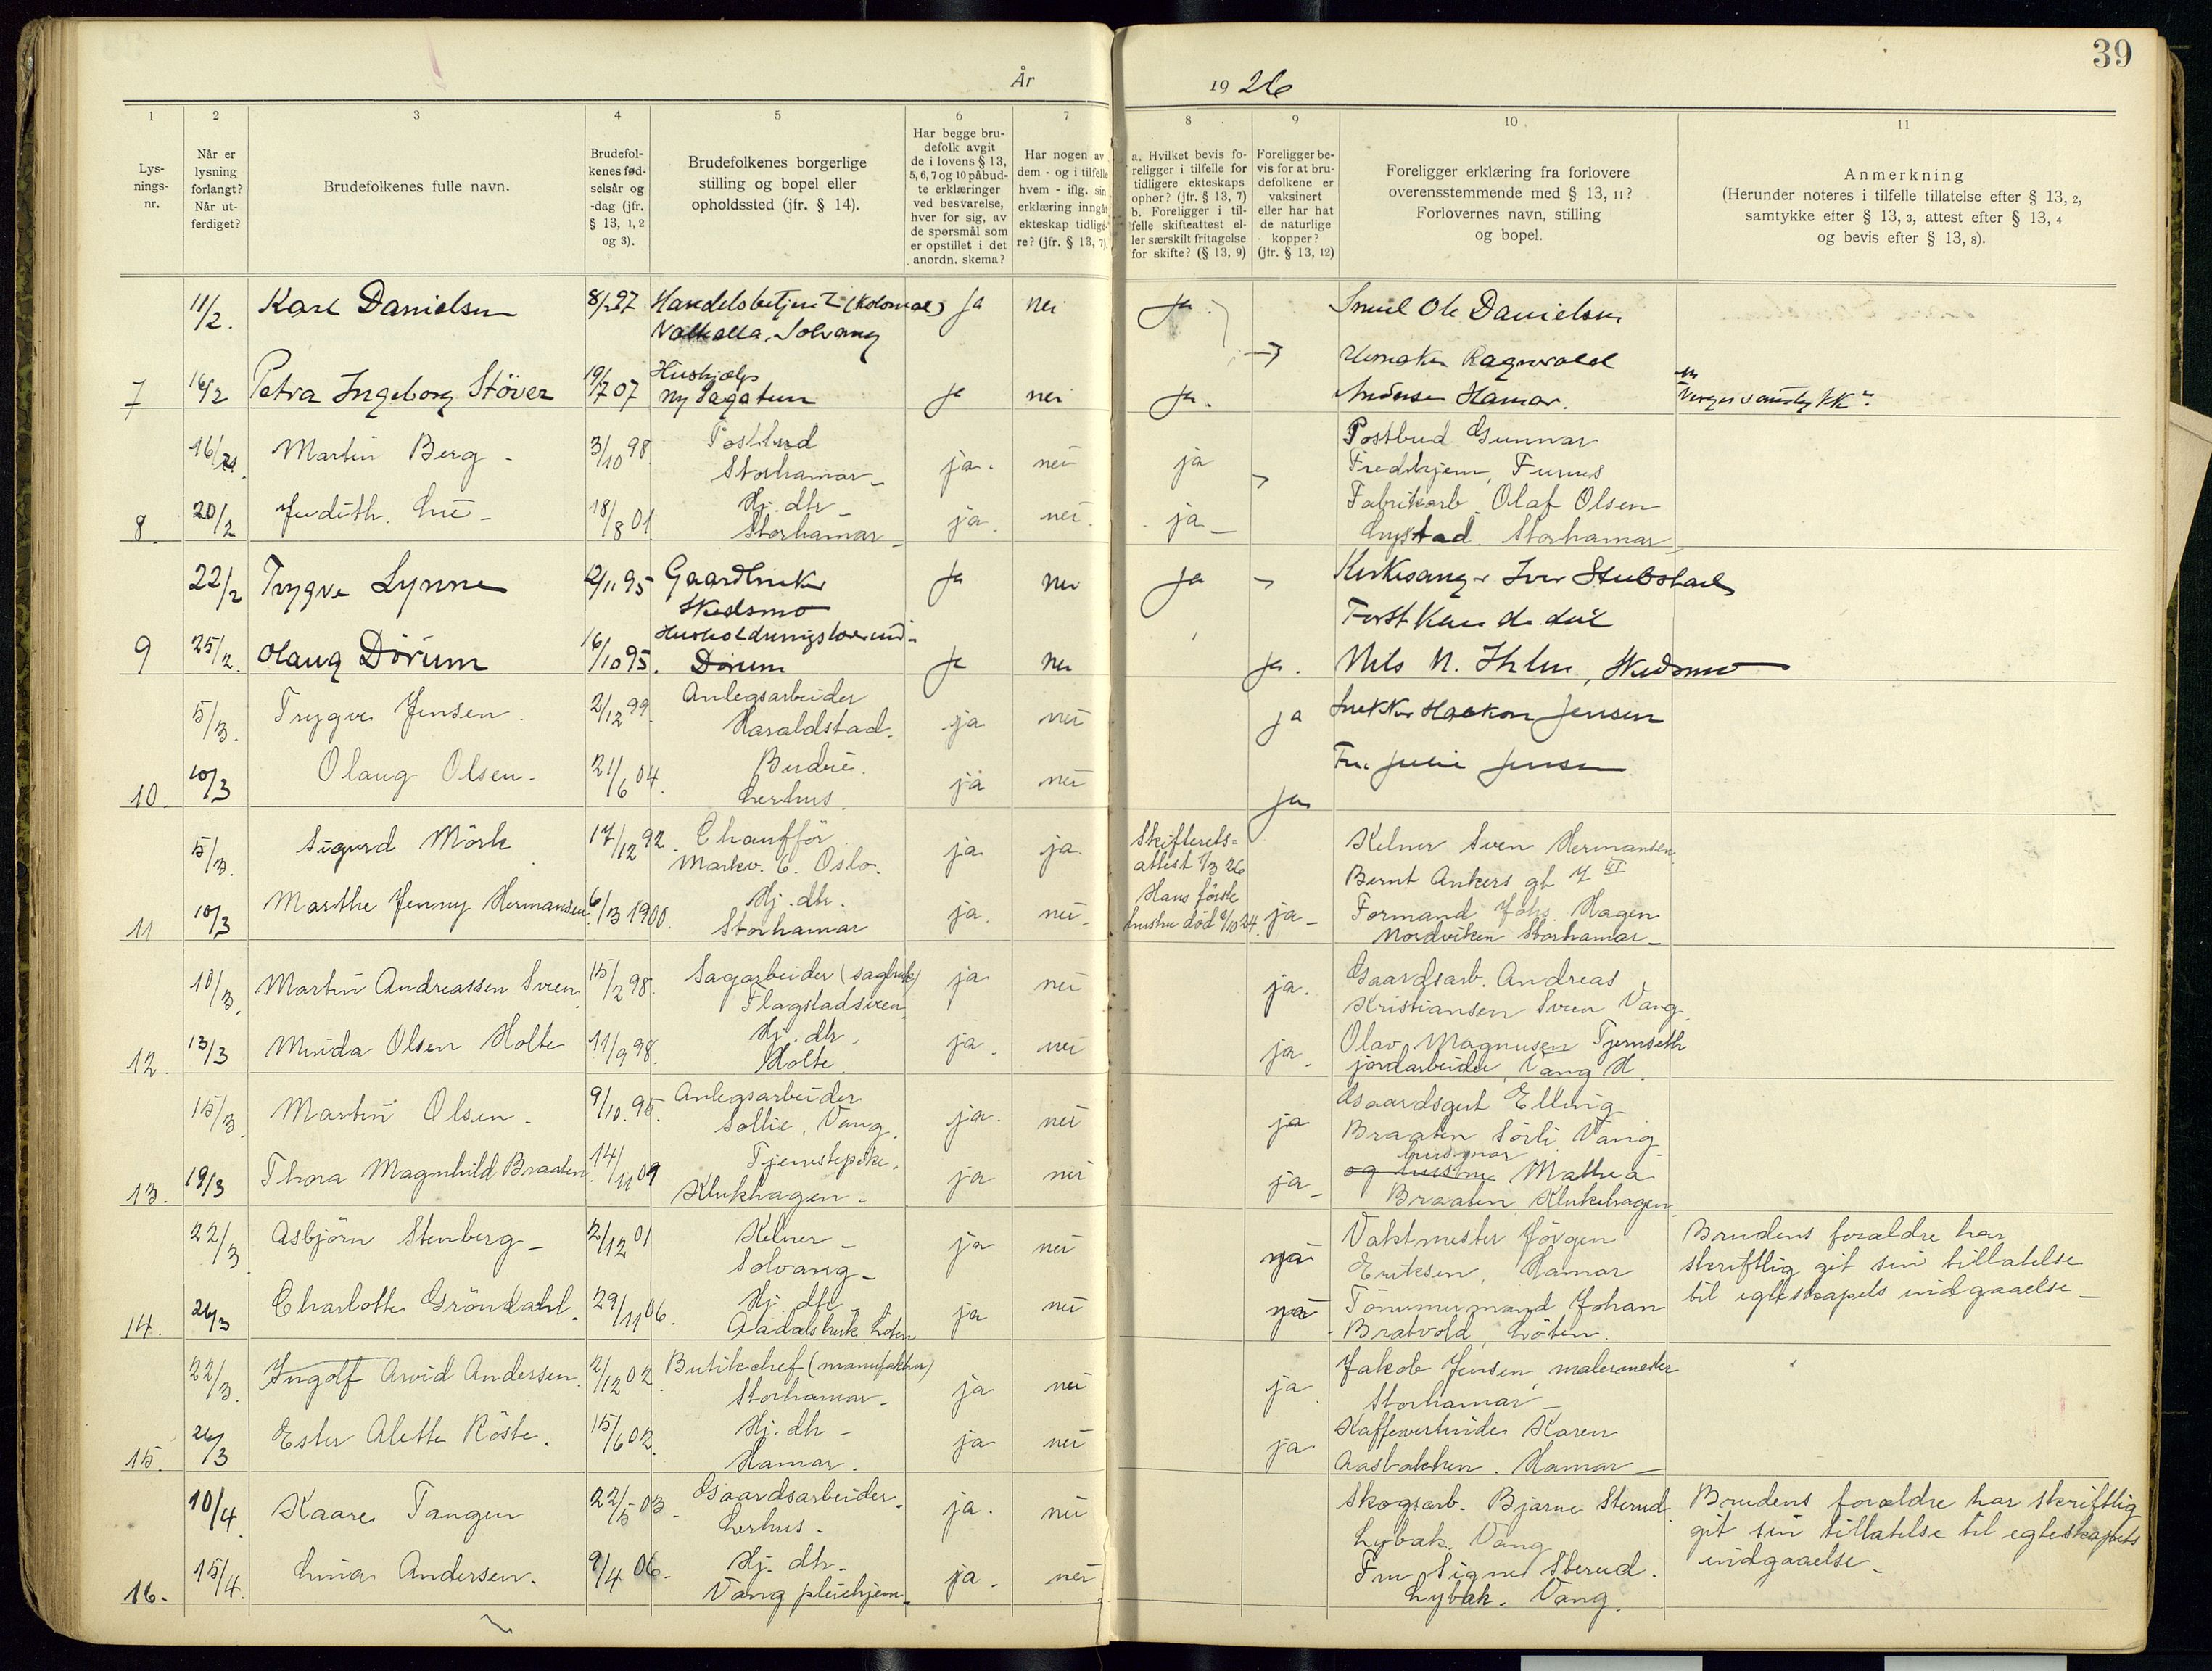 39
År 1926
1 2 3 4 5 6 7 8 9 10 11
Lysningsnr.
Når er lysning forlangt? Når utferdiget?
Brudefolkenes fulle navn.
Brudefolkenes fødselsår og -dag (jfr. § 13, 1, 2 og 3).
Brudefolkenes borgerlige stilling og bopel eller opholdssted (jfr. § 14).
Har begge brudefolk avgit de i lovens § 13, 5, 6, 7 og 10 påbudte erklæringer ved besvarelse, hver for sig, av de spørsmål som er opstillet i det anordn. skema?
Har nogen av dem - og i tilfelle hvem - iflg. sin erklæring inngåt ekteskap tidligere? (jfr. § 13, 7).
a. Hvilket bevis foreligger i tilfelle for tidligere ekteskaps ophør? (jfr. § 13, 7) b. Foreligger i tilfelle skifteattest eller særskilt fritagelse for skifte? (§ 13, 9)
Foreligger bevis for at brudefolkene er vaksinert eller har hat de naturlige kopper? (jfr. § 13, 12)
Foreligger erklæring fra forlovere overensstemmende med § 13, 11? Forlovernes navn, stilling og bopel.
Anmerkning (Herunder noteres i tilfelle tillatelse efter § 13, 2, samtykke efter § 13, 3, attest efter § 13, 4 og bevis efter § 13, 8).
11/2. Karl Danielsen 8/2 97 Handelsbetjent (Kolonial) Ja nei Ja. Ole Danielsen
Valhalla, Solvang
Ragnvald
7 16/2 Petra Ingeborg Stöver 19/7 07 Hushjælp Ny Sagatun Ja nei Ja. Hamar.
16/2. Martin Berg - 3/10 98 Postbud Storhamar - ja. nei ja Postbud Gunnar
Fredhjem, Furnes
8. 20/2 Judith Lie - 18/8 01 Hj. dtr Storhamar - ja. nei. ja - Fabrikarb. Olaf Olsen
Lystad. Storhamar -
22/2 Trygve Lynne 12/11 95 Gaardbruker Skedsmo Ja nei Ja Kirkesanger Iver Stubstad
Forstkandidat
9 25/2. Olaug Dörum 16/10 95. Husholdningslærerind- Dörum Ja nei ja. Nils N. Ihlen, Skedsmo
5/3. Trygve Jensen. 2/12 99. Anlegsarbeider Haraldstad. ja nei ja Snekker Haakon Jensen
10. 10/3 Olaug Olsen. 21/6 04. Budeie. Lerhus. ja nei Ja Fru Julie Jensen
5/3. Sigurd Mörk 17/12 92. Chaufför Markv. 6. Oslo. ja ja. Skifterets= attest 1/3 26 Kelner Sven Hermansen
Bernt Ankers gt 7 III
11 10/3 Marthe Jenny Hermansen 6/3 1900. Hj. dtr. Storhamar ja. nei. Hans första hustru död 2/10 24. ja - Formand Johs. Hagen
Nordviken Storhamar -
10/3. Martin Andreassen Sveen 15/2 98. Sagarbeider (sagbruk) Flagstadsveen ja nei ja. Gaardsarb. Andreas
Kristiansen Sveen Vang.
12. 13/3 Minda Olsen Holte 11/9 98. Hj. dtr. Holte. ja. nei ja. Olav Magnusen Tjernseth
jordarbeider, Vang H.
15/3. Martin Olsen. 9/10. 95. Anlegsarbeider Sollie, Vang. ja. nei ja Gaardsgut Elling
Braaten Sörli Vang
husmor
13. 19/3 Thora Magnhild Braaten. 14/11 09 Tjenestepike. Klukhagen. ja nei ja - og hustru Mathea
Braaten, Klukehagen.
22/3 Asbjörn Stenberg - 2/12 01 Kelner - Solvang - ja nei ja Vaktmester Jörgen Eriksen, Hamar
Brudens forældre har
skriftlig git sin tillatelse
til egteskapets indgaaelse -
14. 26/3 Charlotte Gröndahl. 29/11 06. Hj. dtr Aadalsbruk Löten ja nei ja Tömmermand Johan
Bratvold, Löten.
22/3. Ingolf Arvid Andersen. 2/12 02. Butikchef (manufaktur) Storhamar - ja nei ja Jakob Jensen, malermester
Storhamar -
15. 26/3 Ester Alette Röste. 15/6 02. Hj. dtr - Hamar. ja nei ja Kaffevertinde Karen
Aasbakken. Hamar -
10/4. Kaare Tangen 22/5 03. Gaardsarbeider. Lerhus. ja. nei Skogsarb. Bjarne Sterud.
Lybak. Vang
Brudens forældre har skriftlig
git sin tillatelse til egteskapets
indgaaelse -
16. 15/4. Lina Andersen. 9/4 06. Hj. dtr - Vang pleiehjem. ja. nei Fru Signe Sterud.
Lybak. Vang.